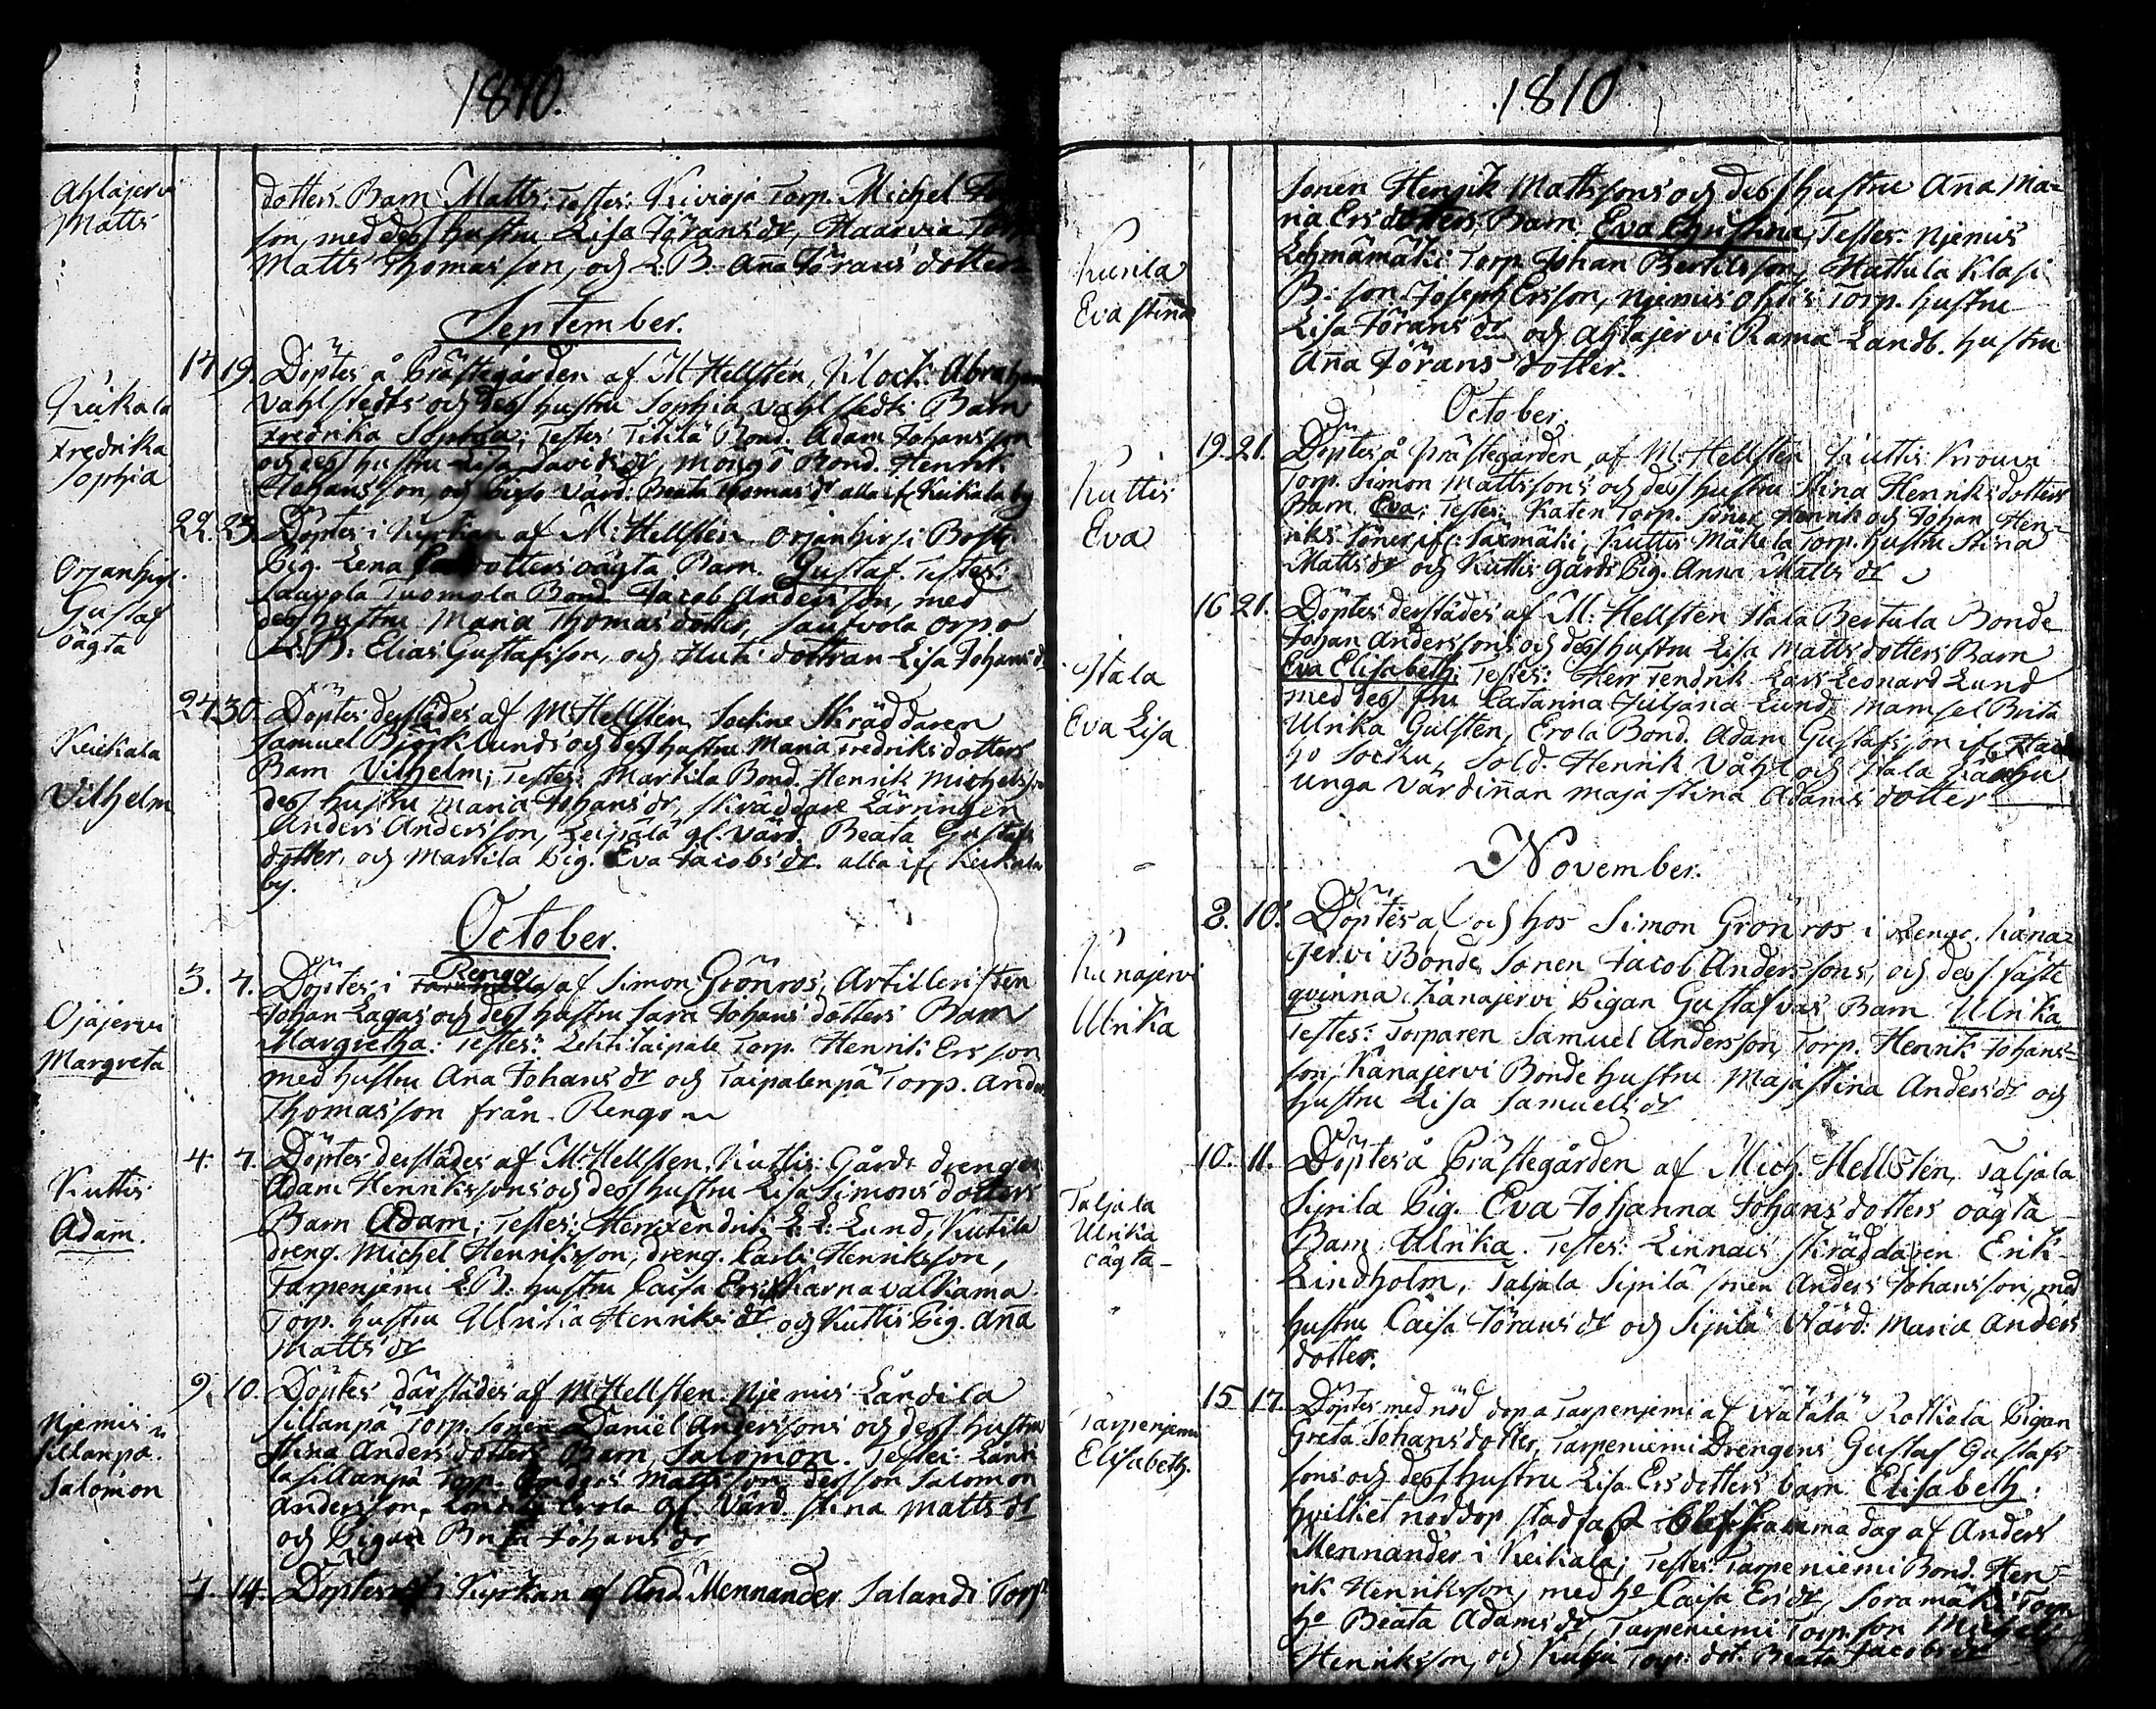 1810.
Ahlajervi
Matts
dotters Barn Matts; Testes: Kivioja Torp. Michel
son, med dess hustru Lisa Jörans dr, Haarvia Torp
Matts Thomasson, och L.B. Aña Jörans dotter
September.
Keikala
Fredrika
Sophia
14 19. Döptes å Prästegården af M Hellsten, Klock. Abraham
Vahlstedts och dess hustru Sophia Vahlstedts Barn
Fredrika Sophia; Testes Titilä Bond. Adam Johansson
och dess hustru Lisa Davids dr, Moisjö Bond. Henrik
Johansson, och Värd. Beata Thomas dr alla if Keikala by
Orjanhirs.
Gustaf
oägta
22. 23. Döptes i Kyrkan af M: Hellsten Orjanhirsi Bost.
Pig. Lena dotters oägta Barn. Gustaf. Testes:
Sauvola Tuomola Bond. Jacob Andersson, med
dess hustru Maria Thomas dotter,
L:B: Elias Gustafsson, och Huti dottran Lisa Johans dr
Keikala
Vilhelm
24 30. Döptes derstädes af M Hellsten, Sockne Skräddaren
Samuel Björklunds och dess hustru Maria Fredriksdotters
Barn Vilhelm; Testes: Martila Bond. Henrik Michelsson
dess hustru Maria Johans dr, Skräddare Lärlingen
Anders Andersson, Leipälä gl. Värd. Beata Gustafs
dotter, och Martila Pig. Eva Jacobs dr. alla if Keikala
by.
October.
Ojajervi
Margreta
3. 7. Döptes i Rengo af Simon Grönros, Artilleristen
Johan Lagas och dess hustru Sara Johans dotters Barn
Margretha: Testes: Lehtitaipale Torp. Henrik Ersson
med hustru Aña Johans dr och Taipalenpä Torp. And
Thomasson från Rengo
Kuttis
Adam.
4. 7. Döptes derstädes af M: Hellsten, Kuttis Gårds drengen
Adam Henrikssons och dess hustru Lisa Simons dotters
Barn Adam; Testes: Herr Fendrik L:L: Lund, Kutila
dreng. Michel Henriksson, dreng. Carl Henriksson,
Tarpenjemi L.B. hustru Caisa Ers dr Karnavalkama
Torp. hustru Ulrika Henriks dr och Kuttis Pig. Aña
Matts dr
Njemis
Sillanpä.
Salomon
9. 10. Döptes därstädes af M Hellsten Njemis Ländila
Sillanpä Torp. Sonen Daniel Anderssons och dess hustru
Stina Anders dotters Barn, Salomon. Testes: Länti
la Sillanpä Torp. Anders Mattsson dess son Salomon
Andersson, Erola gl. Värd. Stina Matts dr
och Pigan Brita Johans dr
7. 14. Döptes i Kyrkan af And. Mennander Salandi Torp
1810
Kunila
Eva Stina
Sonen Henrik Mattssons och dess hustru Aña Ma-
ria Ersdotters Barn. Eva Christina, Testes: Njemis
Lehmämäki Torp. Johan Bertilsson, Hattula Klasi
B: son Joseph Ersson, Njemis Torp. hustru
Lisa Jörans dr och Ahlajervi Rama Landb. hustru
Aña Jörans dotter.
October.
Kuttis
Eva
19. 21. Döptes å Prästegården, af M: Hellsten Kuttis Krouvi
Torp. Simon Mattssons och dess hustru Stina Henriksdotters
Barn Eva; Testes: Katen Torp. söner Henrik och Johan Hen-
riks söner if: Saxmäki, Kuttis Makela Torp. hustru Stina
Matts dr och Kuttis gårds Pig. Anna Matts dr
Itala
Eva Lisa
16 21. Döptes derstädes af M: Hellsten Itala Bertula Bonde
Johan Anderssons och dess hustru Lisa Matts dotters Barn
Eva Elisabeth; Testes: Herr Fendrik Lars Leonard Lund
med dess fru Catarina Juliana Lund, Mamsel Brita
Ulrika Gulsten, Erola Bond. Adam Gustafsson if
Sold. Henrik Våhl och Itala
unga Värdiñan Maja Stina Adams dotter
November.
Kanajervi
Ulrika
8. 10. Döptes af och hos Simon Grönros i Rengo, Kana-
jervi Bonde Sonen Jacob Anderssons, och dess fäste
qvinna Kanajervi Pigan Gustafvas Barn Ulrika
Testes: Torparen Samuel Andersson, Torp. Henrik Johans-
son, Kanajervi Bonde hustru Maja Stina Anders dr och
hustru Lisa Samuels dr
Taljala
Ulrika
oägta
10. 11. Döptes å Prästegården af Mich. Hellsten, Taljala
Sipila Pig. Eva Johanna Johans dotters oägta
Barn Ulrika. Testes: Linnais Skräddaren Erik
Lindholm, Taljala Sipilä sonen Anders Johansson, med
hustru Caisa Jörans dr och Sipilä Wärd: Maria Anders
dotter.
Tarpenjemi
Elisabeth.
15 17. Döptes med nöd dop a Tarpenjemi af Wätälä Kottiola Pigan
Greta Johansdotter, Tarpeniemi Drengens Gustaf Gustafs
sons och dess hustru Lisa Ersdotters barn Elisabeth.
hvilket nöddop stadfast blef samma dag af Anders
Mennander i Keikala; Testes: Tarpeniemi Bond. Hen-
rik Henriksson, med he Caisa Ers dr, Soramäki Torp.
he Beata Adams dr, Tarpeniemi Torp. son Michel
Henriksson, och Kulju Torp: dot. Beata Jacobs dr